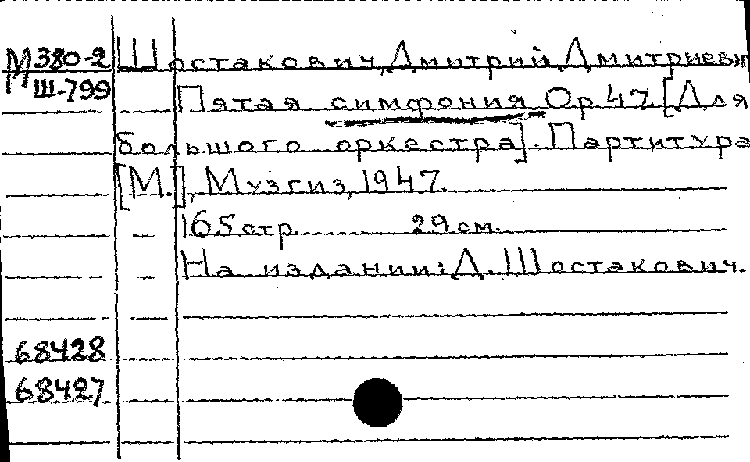 М 380-2 Шостакович, Дмитрий Дмитриеви
Ш-799 Пятая симфония Op. 47 [Для
большого оркестра]. Партитура
[М.], Музгиз, 1947.
165 стр. 29 см.
На издании: Д. Шостакович.
68428
68427